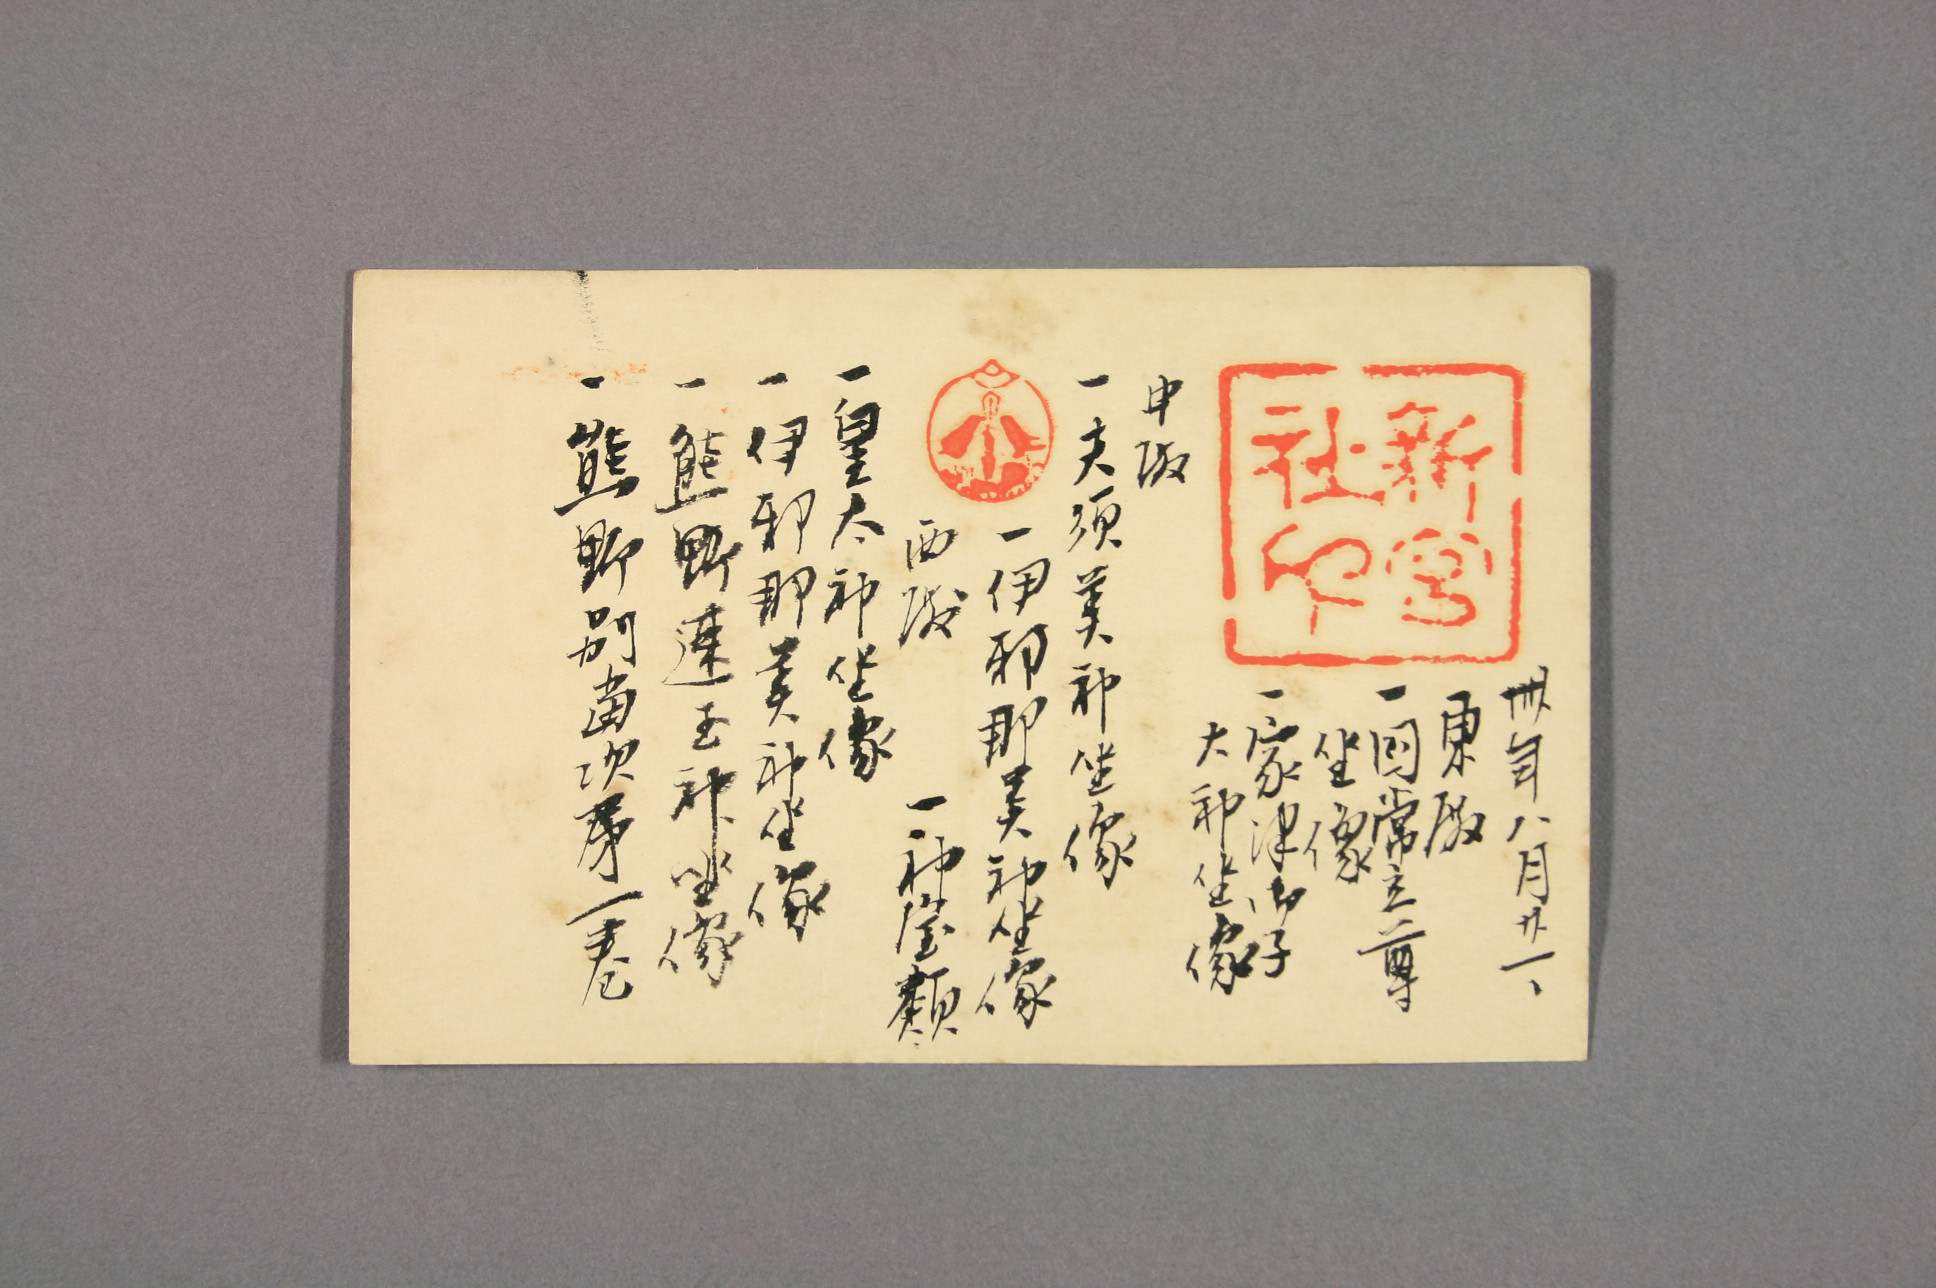 新宮
社印
卅年八月廿一、
東殿
一國常立尊
坐像
一家津御子
大神坐像
中殿
一夫須美神坐像
一伊邪那美神坐像
西殿
一神宝類
一皇太神坐像
一伊邪那美神坐像
一熊野速玉神坐像
一熊野別當次第一巻